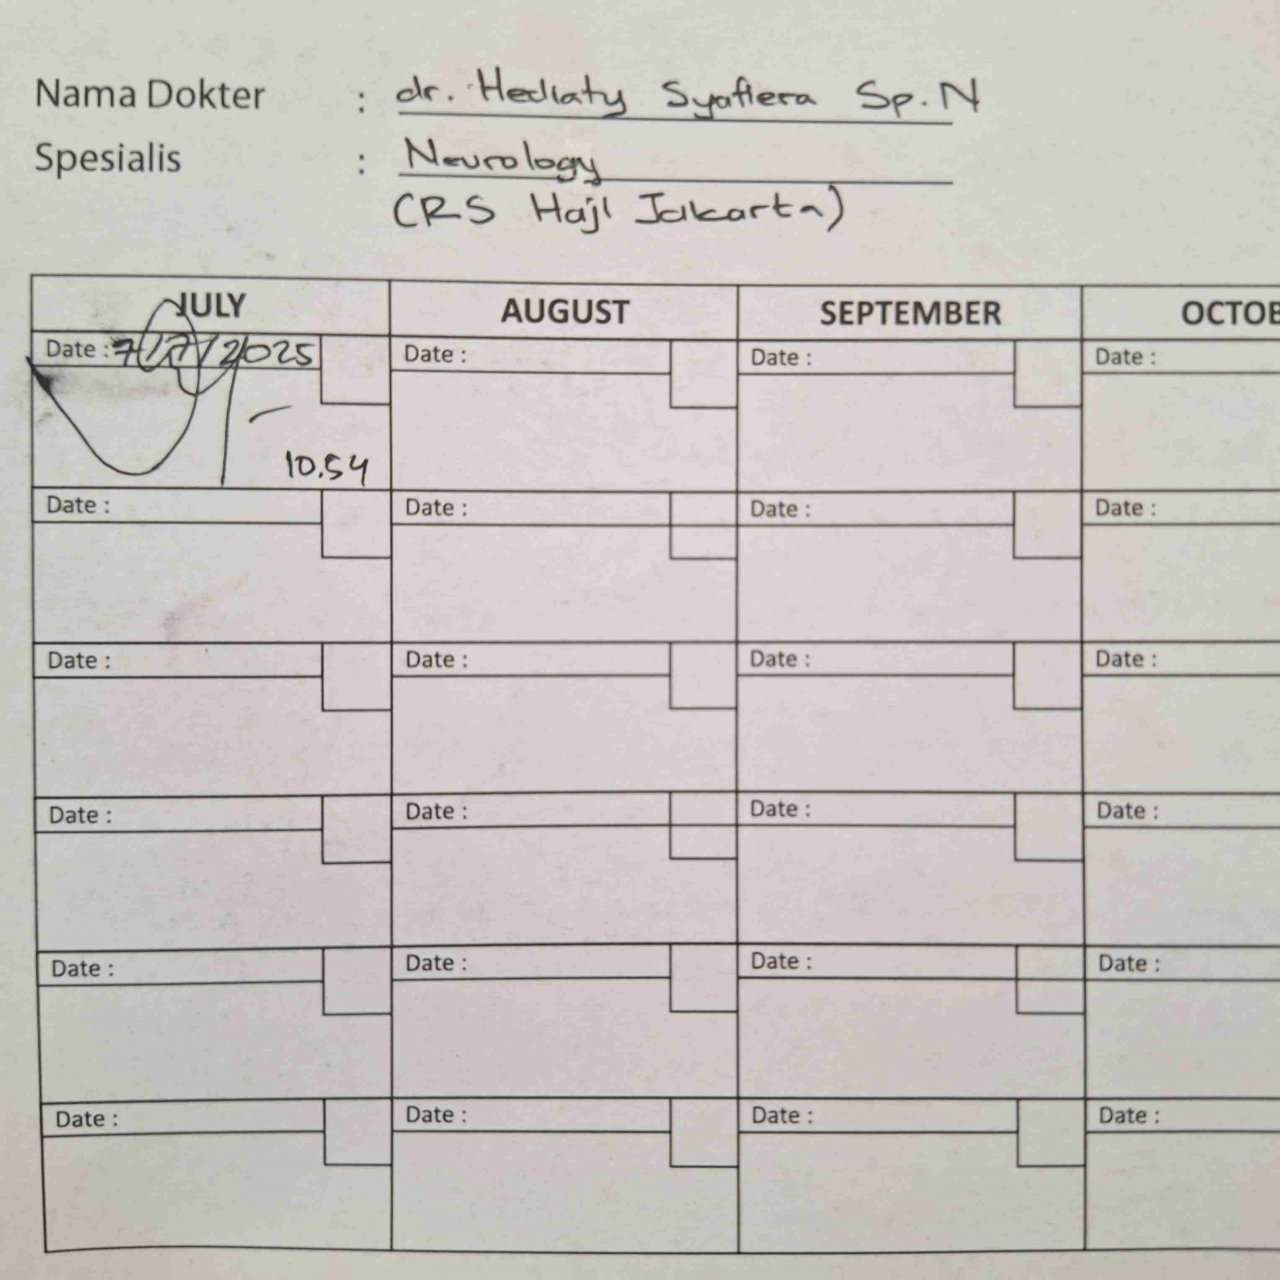 Nama Dokter : dr. Hediaty Syafiera Sp.N
Spesialis : Neurology
(RS Haji Jakarta)
JULY AUGUST SEPTEMBER OCTOB
Date : 7/7/2025 Date : Date : Date :
10.54
Date : Date : Date : Date :
Date : Date : Date : Date :
Date : Date : Date : Date :
Date : Date : Date : Date :
Date : Date : Date : Date :